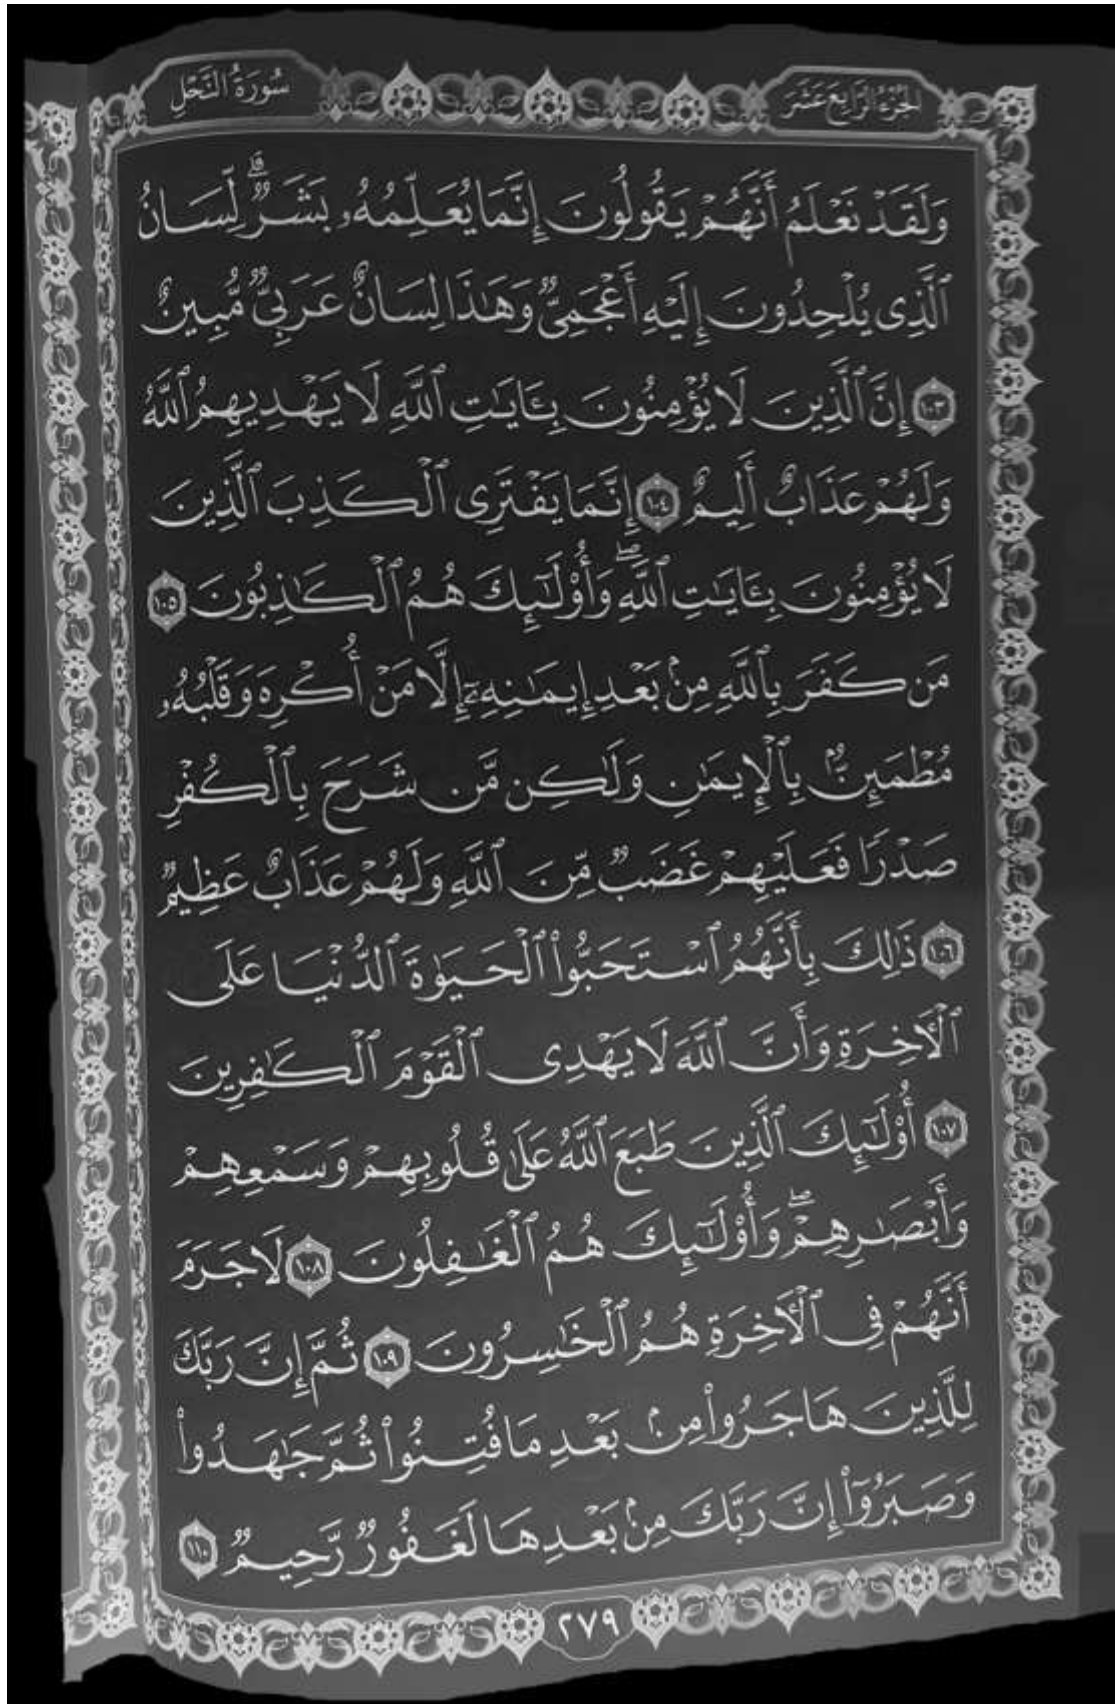 الجزء الرابع عشر
سورة النحل
وَلَقَدْ نَعْلَمُ أَنَّهُمْ يَقُولُونَ إِنَّمَا يُعَلِّمُهُۥ بَشَرٌۗ لِّسَانُ
ٱلَّذِى يُلْحِدُونَ إِلَيْهِ أَعْجَمِىٌّ وَهَٰذَا لِسَانٌ عَرَبِىٌّ مُّبِينٌ
١٠٣ إِنَّ ٱلَّذِينَ لَا يُؤْمِنُونَ بِـَٔايَٰتِ ٱللَّهِ لَا يَهْدِيهِمُ ٱللَّهُ
وَلَهُمْ عَذَابٌ أَلِيمٌ ١٠٤ إِنَّمَا يَفْتَرِى ٱلْكَذِبَ ٱلَّذِينَ
لَا يُؤْمِنُونَ بِـَٔايَٰتِ ٱللَّهِۖ وَأُو۟لَٰٓئِكَ هُمُ ٱلْكَٰذِبُونَ ١٠٥
مَن كَفَرَ بِٱللَّهِ مِنۢ بَعْدِ إِيمَٰنِهِۦٓ إِلَّا مَنْ أُكْرِهَ وَقَلْبُهُۥ
مُطْمَئِنٌّۢ بِٱلْإِيمَٰنِ وَلَٰكِن مَّن شَرَحَ بِٱلْكُفْرِ
صَدْرًا فَعَلَيْهِمْ غَضَبٌ مِّنَ ٱللَّهِ وَلَهُمْ عَذَابٌ عَظِيمٌ
١٠٦ ذَٰلِكَ بِأَنَّهُمُ ٱسْتَحَبُّوا۟ ٱلْحَيَوٰةَ ٱلدُّنْيَا عَلَى
ٱلْـَٔاخِرَةِ وَأَنَّ ٱللَّهَ لَا يَهْدِى ٱلْقَوْمَ ٱلْكَٰفِرِينَ
١٠٧ أُو۟لَٰٓئِكَ ٱلَّذِينَ طَبَعَ ٱللَّهُ عَلَىٰ قُلُوبِهِمْ وَسَمْعِهِمْ
وَأَبْصَٰرِهِمْۖ وَأُو۟لَٰٓئِكَ هُمُ ٱلْغَٰفِلُونَ ١٠٨ لَا جَرَمَ
أَنَّهُمْ فِى ٱلْـَٔاخِرَةِ هُمُ ٱلْخَٰسِرُونَ ١٠٩ ثُمَّ إِنَّ رَبَّكَ
لِلَّذِينَ هَاجَرُوا۟ مِنۢ بَعْدِ مَا فُتِنُوا۟ ثُمَّ جَٰهَدُوا۟
وَصَبَرُوٓا۟ إِنَّ رَبَّكَ مِنۢ بَعْدِهَا لَغَفُورٌ رَّحِيمٌ ١١٠
٢٧٩